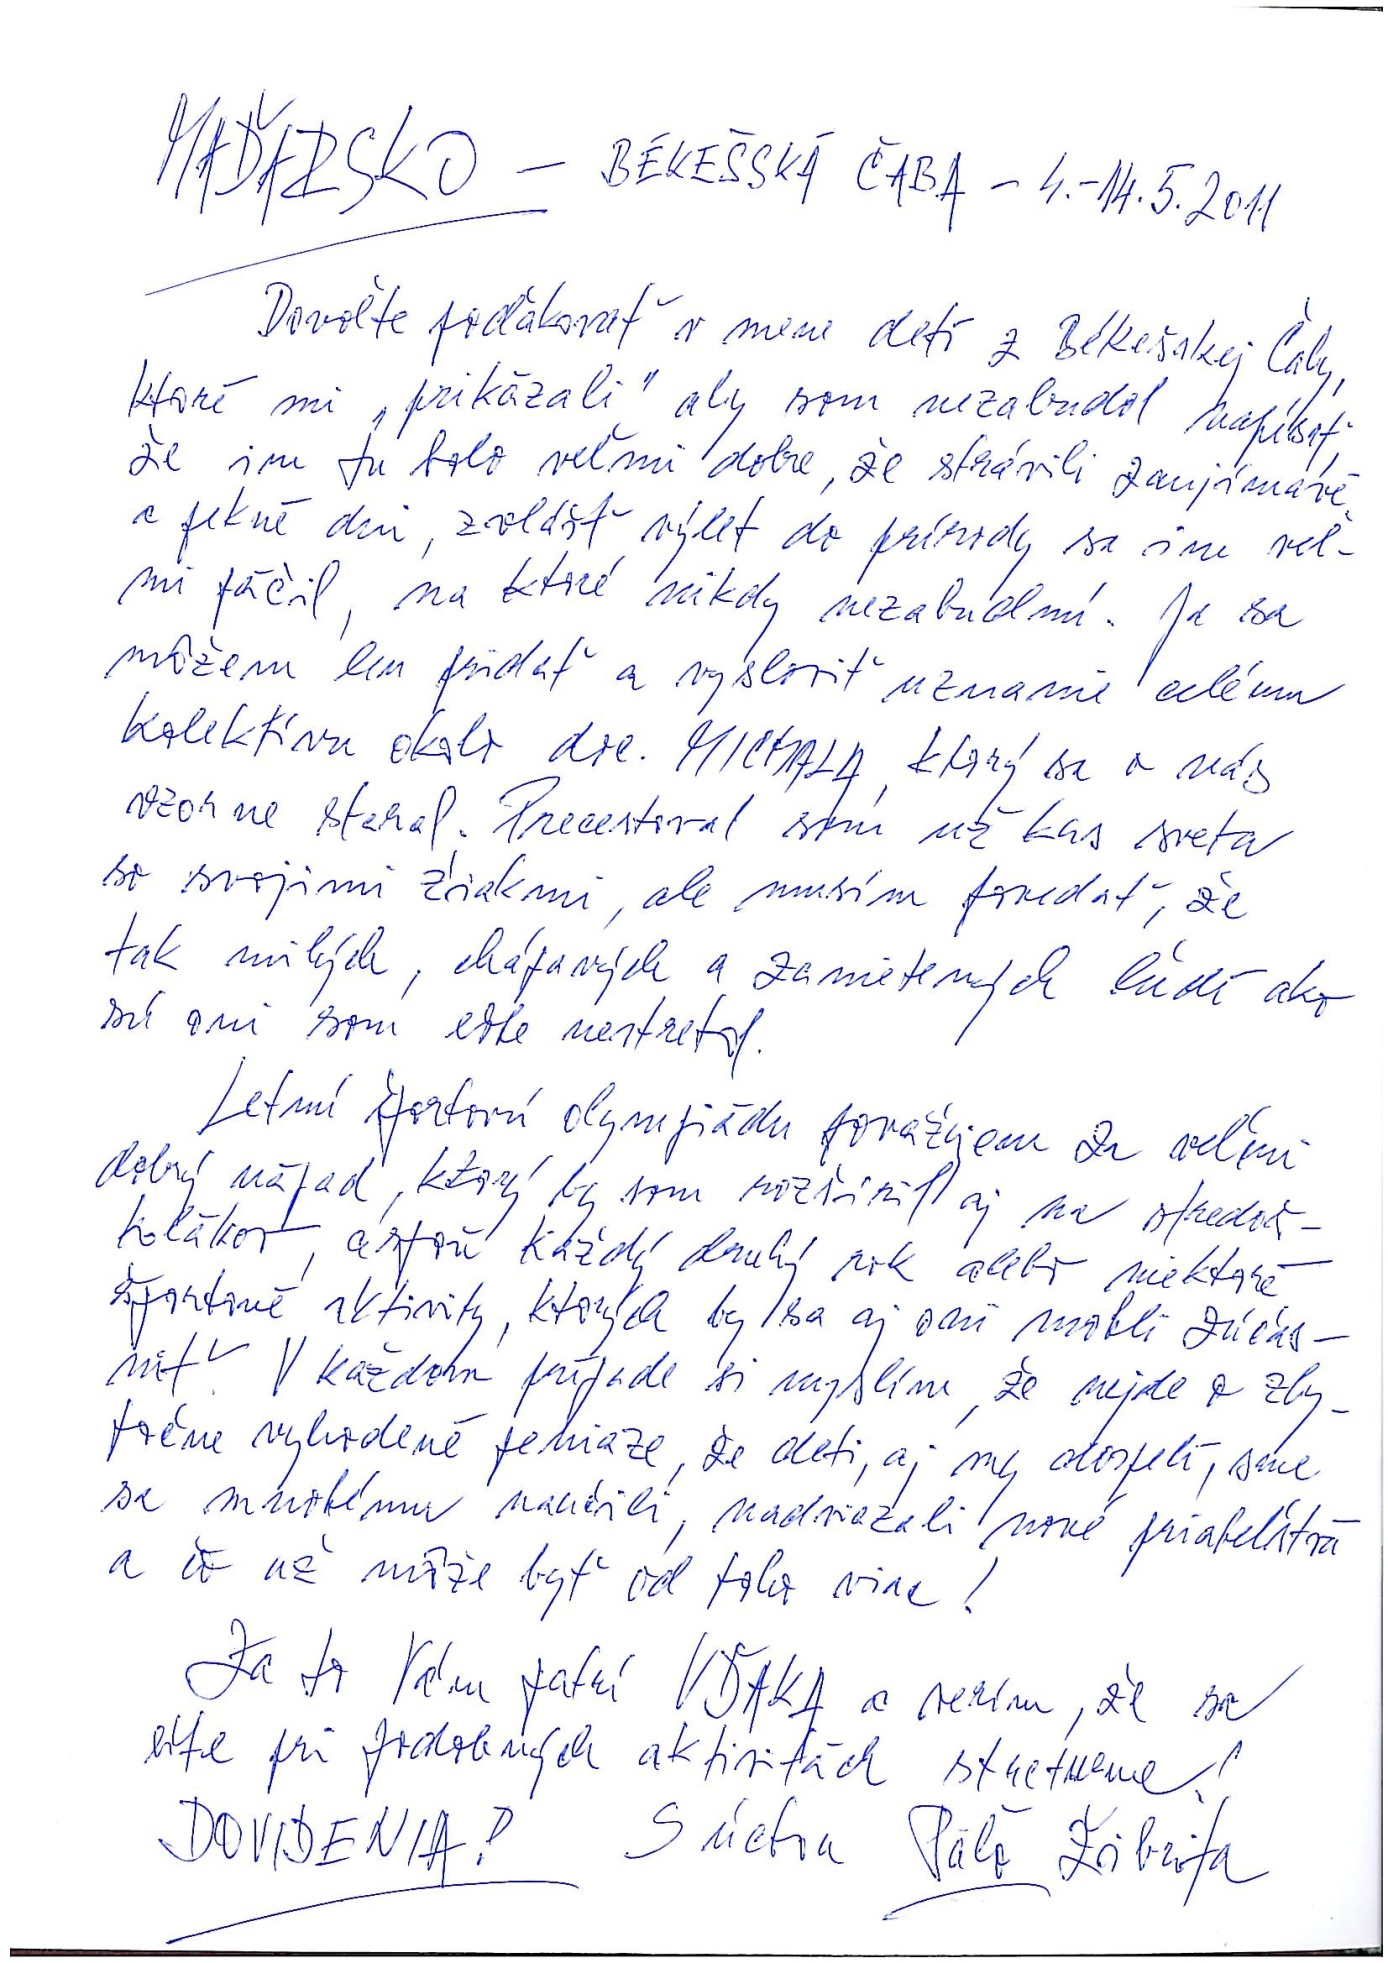 MAĎARSKO – BÉKEŠSKÁ ČABA – 4.–14.5.2011
Dovoľte poďakovať v mene detí z Békešskej Čaby,
ktoré mi „prikázali" aby som nezabudol napísať,
že im tu bolo veľmi dobre, že strávili zaujímavé
a pekné dni, zvlášť výlet do prírody sa im veľ-
mi páčil, na ktoré nikdy nezabudnú. Ja sa
môžem len pridať a vysloviť uznanie celému
kolektívu okolo doc. MICHALA, ktorý sa o nás
vzorne staral. Precestoval som už kus sveta
so svojimi žiakmi, ale musím povedať, že
tak milých, chápavých a zanietených ľudí ako
sú oni som ešte nestretol.
Letnú športovú olympiádu považujem za veľmi
dobrý nápad, ktorý by som rozšíril aj na stredoš-
kolákov, aspoň každý druhý rok alebo niektoré
športové aktivity, ktorých by sa aj oni mohli zúčas-
niť. V každom prípade si myslím, že nejde o zby-
točne vyhodené peniaze, že deti, aj my dospelí, sme
sa mnohému naučili, nadviazali nové priateľstvá
a čo už môže byť od toho viac!
Za to Vám patrí VĎAKA a verím, že sa
ešte pri podobných aktivitách stretneme!
DOVIDENIA! S úctou Paľo Žibrita